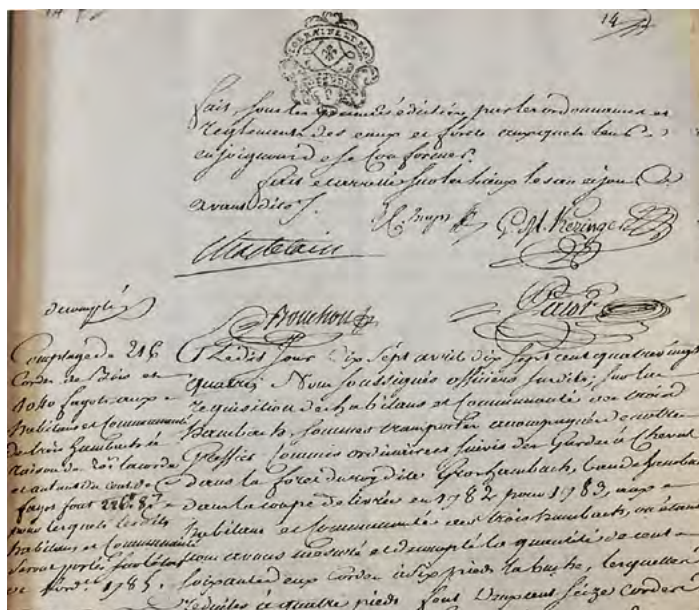 14
fait, sous les peines édictées par les ordonnances et
Reglements des eaux et forets auxquels leur
enjoignons de se Conformer.
fait et arrêté sur les champs les an et jour
avant dits
G. M. Kezinger
Chatelain
Bouchon
decompté
Comptage de 216
Cordes de Bois et
fagots, aux
habitans et Communauté
de trois hambachs à
raison de la corde
et autant du cent de
fagot font
pour lesquels lesdits
habitans et Communauté
seront portés sur l'état
de 1785.
Ledit Jour Dix Sept avril dix Sept cent quatrevingt
quatre, Nous soussignés officiers susdits, sur la
requisition des habitans et Communauté de trois
hambach, sommes transportés accompagnés de notre
Greffier Commis ordinaire et suivis des Gardes à Cheval
dans la foret du roy dite Groshambach,
dans la coupe delivrée en 1782 pour 1783, aux
habitans et Communauté des trois hambach, où étant
nous avons mesuré et decompté la quantité de cent
soixante deux Cordes à Six pieds la buche, lesquelles
réduites à quatre pieds font Deux cent Seize Cordes